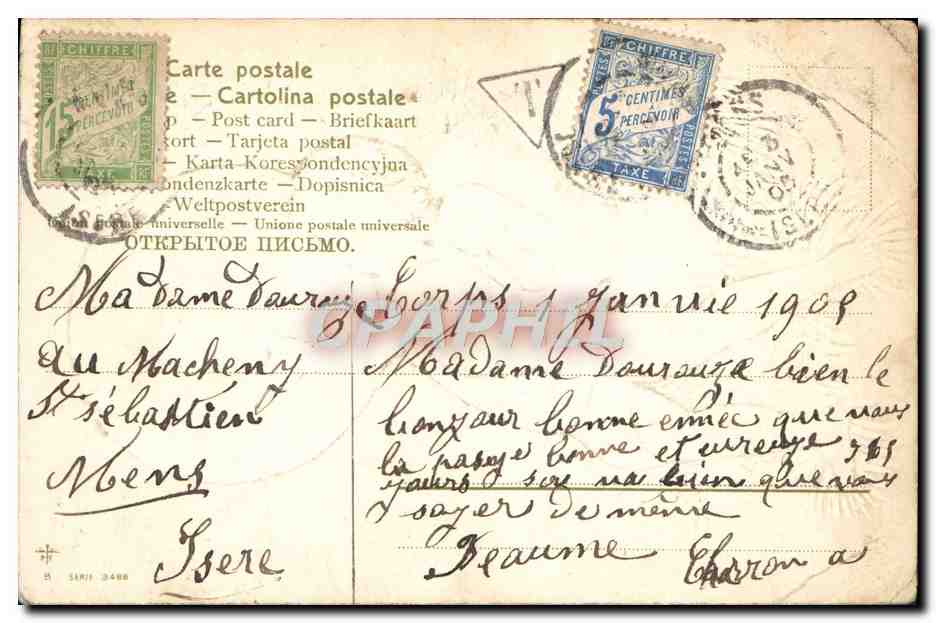 CHIFFRE
15 CENTIMES
A PERCEVOIR
POSTES
TAXE
ISERE
CHIFFRE
5 CENTIMES
A PERCEVOIR
POSTES
TAXE
T
JANV
05
Carte postale
e — Cartolina postale
p — Post card — Briefkaart
kort — Tarjeta postal
— Karta Korespondencyjna
ondenzkarte — Dopisnica
Weltpostverein
Union postale universelle — Unione postale universale
ОТКРЫТОЕ ПИСЬМО.
CPAPHIL
Madame Dourouze
au Macheny
St sébastien
Mens
Isere
Corps 1 Janvie 1905
Madame Dourouze bien le
bonjour bonne ennée que vous
la pasye bonne et ureuze
jours sa va bien que vous
soyer de même
Beaume
B SERIE 3488